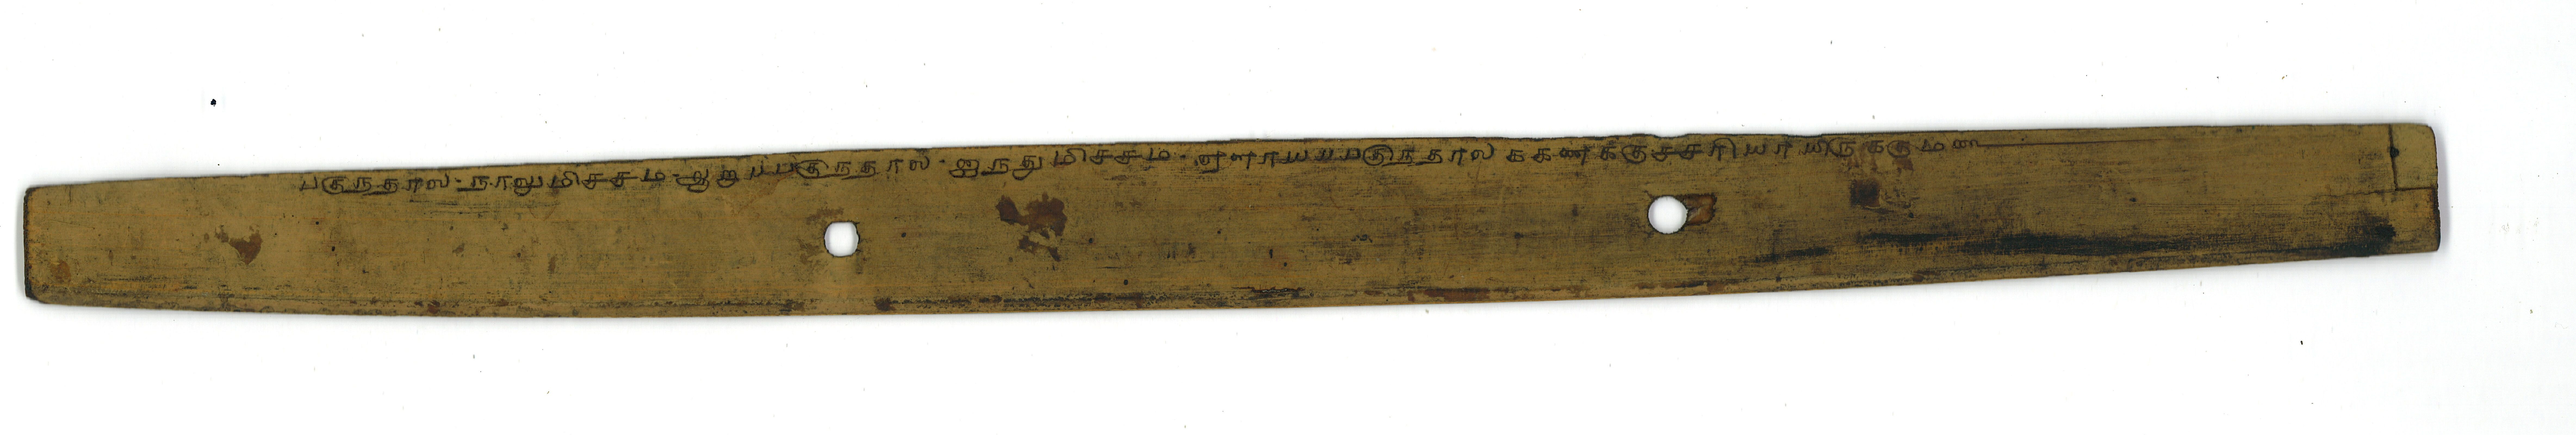 பகுநதால - நாலுமிசசம - ஆறுபபகுநதால - ஐநதுமிசசம - ஏளாயபபகுநதால கணககுசசரியாயிருககும